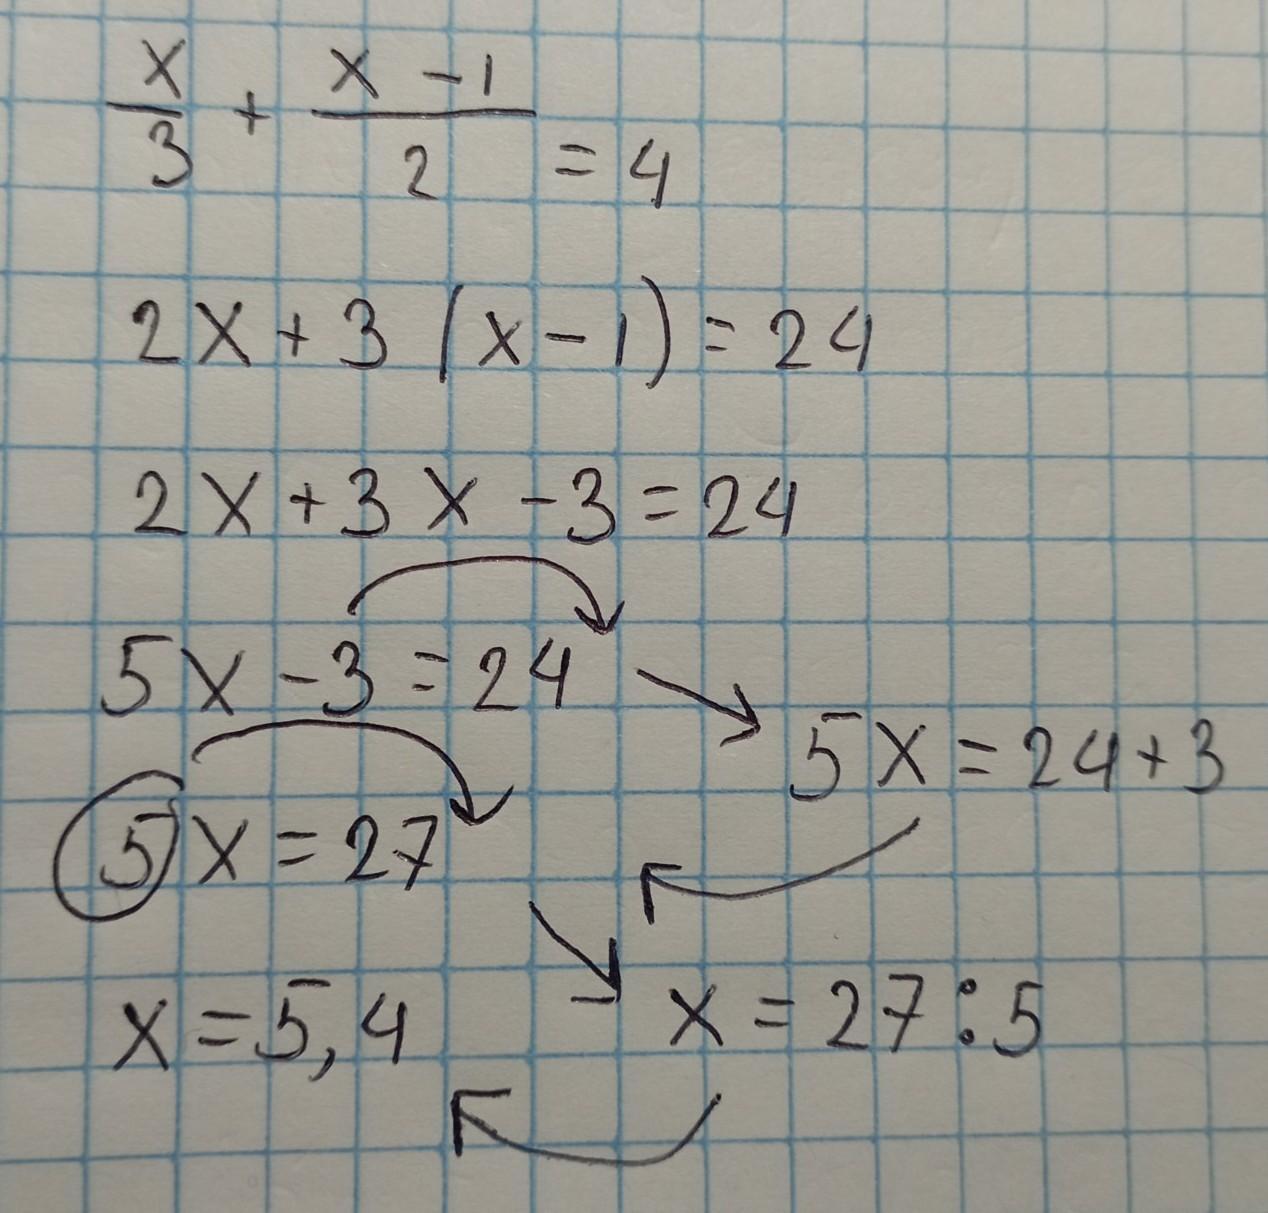 x/3 + (x - 1)/2 = 4
2x + 3 (x - 1) = 24
2x + 3x - 3 = 24
5x - 3 = 24
5x = 24 + 3
5x = 27
x = 27 : 5
x = 5,4